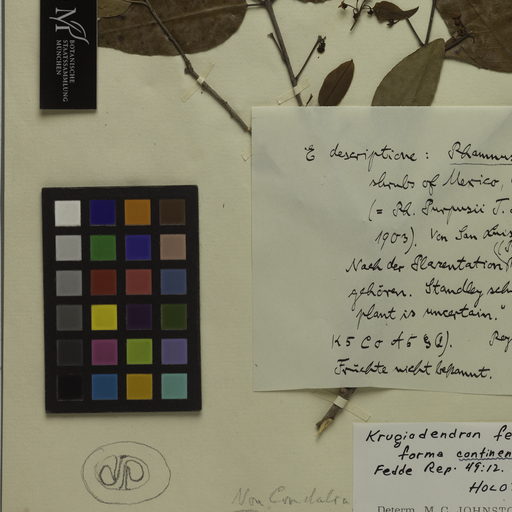 M
BOTANISCHE
STAATSSAMMLUNG
MÜNCHEN
E descriptione: Rhamnus
shrubs of Mexico,
(= Rh. Purpusii T.
1903). Von San Luis
Nach der
gehören. Standley
plant is uncertain."
K5 C0 A5
Früchte nicht bekannt.
Krugiodendron fe
forma continen
Fedde Rep. 49:12.
HOLO
Determ. M. C. JOHNSTO
Non Condalia